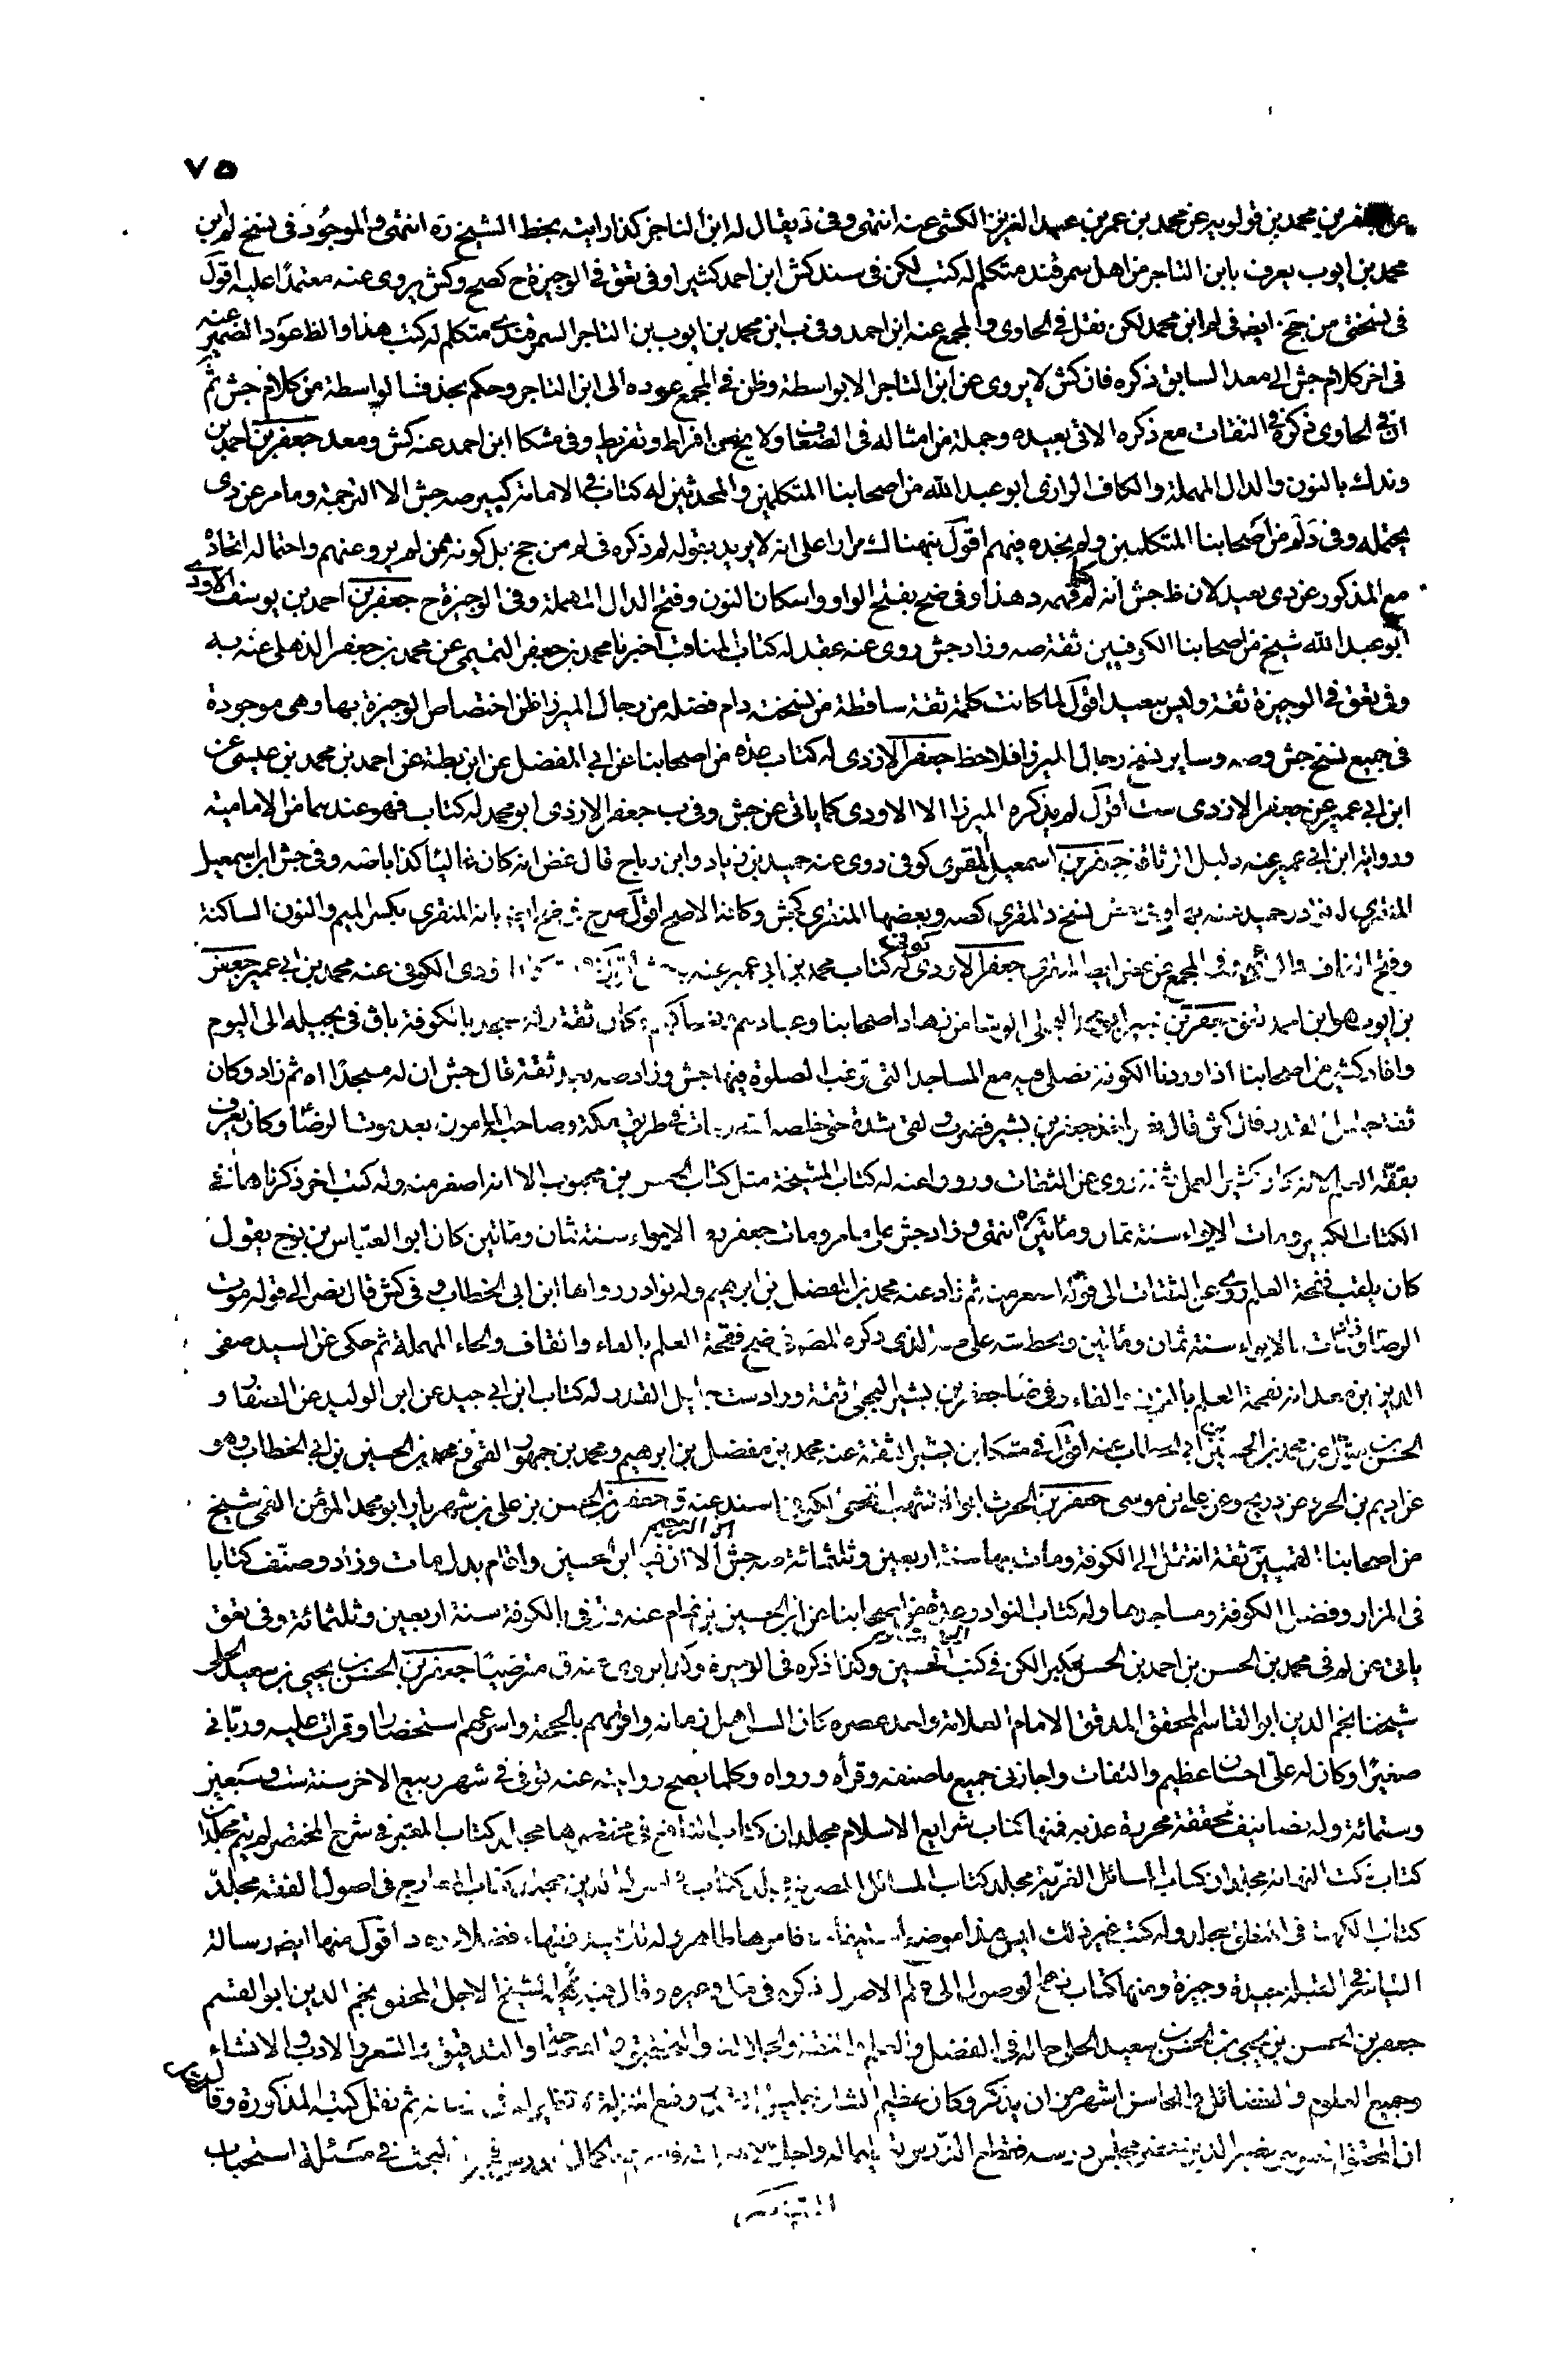 ٧٥
جعفر بن محمد بن قولويه عن محمد بن عمر بن عبد العزيز الكشى عنه انتهى وفى د يقال له ابن التاجر كذا رايته بخط الشيخ ره انتهى والموجود فى نسخ لم ابن
محمد بن ايوب يعرف بابن التاجر من اهل سمرقند متكلم له كتب لكن فى سند كش ابن احمد كثير او فى تعق فى الوجيزة ح كصح وكش يروى عنه معتمدا عليه اقول
فى نسختى من جخ ايضا فى لم ابن محمد لكن نقل فى الحاوى والمجمع عنه ابن احمد وفى ب ابن محمد بن ايوب بن التاجر السمرقندى متكلم له كتب هذا والظ عود الضمير عنه
فى اخر كلام جش الى معد السابق ذكره فان كش لا يروى عن ابن التاجر الا بواسطة وظن فى المجمع عوده الى ابن التاجر وحكم بحذف الواسطة من كلام جش ثم
ان فى الحاوى ذكره فى الثقات مع ذكره الاتى بعيده وجملة من امثاله فى الضعاف ولا يخفى افراط وتفريط وفى مشكا ابن احمد عنه كش ومعد جعفر بن احمد بن
وندك بالنون والدال المهملة والكاف الرازى ابو عبد الله من اصحابنا المتكلمين والمحدثين له كتاب فى الامامة كبير صه جش الا الترجمة وما مر عن دى
يحتمله وفى د لم من اصحابنا المتكلمين ولم يخده فيهم اقول نبهناك مرارا على انه لا يريد بقوله لم ذكره فى لم من جخ بل كونه ممن لم يرو عنهم واحتماله اتحاده
مع المذكور عن دى بعيد لان ظ جش انه كما فهمه د هذا وفى ضح بفتح الواو واسكان النون وفتح الدال المهملة وفى الوجيزة ح جعفر بن احمد بن يوسف الاودى
ابو عبد الله شيخ من اصحابنا الكوفيين ثقة صه وزاد جش روى عنه عقد له كتاب المناقب اخبرنا محمد بن جعفر التميمى عن محمد بن جعفر الذهلى عنه به
وفى تعق فى الوجيزة ثقة وليس ببعيد اقول لما كانت كلمة ثقة ساقطة من نسخته دام فضله من رجال الميرزا ظن اختصاص الوجيزة بها وهى موجودة
فى جميع نسخ جش وصه وساير نسخ رجال الميرزا فلاحظ جعفر الازدى له كتاب عدة من اصحابنا عن ابى المفضل عن ابن بطة عن احمد بن محمد بن عيسى عن
ابن ابى عمير عن جعفر الازدى ست اقول لم يذكره الميرزا الا الاودى كما ياتى عن جش وفى ب جعفر الازدى ابو محمد له كتاب فهو عندهما من الامامية
ورواية ابن ابى عمير عنه دليل الوثاقة جعفر بن اسمعيل المقرى كوفى روى عنه حميد بن زياد وابن رباح قال غض انه كان غاليا كذابا صه وفى جش ابن اسمعيل
المنقرى له نوادر حميد عنه به او فى بعض نسخ د المقرى كصه وبعضها المنقرى كجش وكانه الاصح اقول صرح فى ضح ايضا بانه المنقرى بكسر الميم والنون الساكنة
وفتح القاف والراء وفى المجمع عن غض ايضا المنقرى جعفر الاودى كوفى له كتاب محمد بن ابى عمير عنه به الاودى الكوفى عنه محمد بن ابى عمير جعفر
بن ايوب هو ابن احمد تعق جعفر بن بشير ابو محمد البجلى الوشا من زهاد اصحابنا وعبادهم ونساكهم وكان ثقة وله مسجد بالكوفة باق فى بجيلة الى اليوم
وانا وكثير من اصحابنا اذا وردنا الكوفة نصلى فيه مع المساجد التى ترغب الصلوة فيها جش وزاد صه بعد ثقة قال جش ان له مسجدا اه ثم زاد وكان
ثقة جليل القدر قال كش قال نصر اخذ جعفر بن بشير فضرب لقى شدة حتى خلصه الله ومات فى طريق مكة وصاحب المامون بعد موت الرضا وكان يعرف
بفقحة العلم لانه كان كثير العلم ثقة روى عن الثقات ورووا عنه له كتاب المشيخة مثل كتاب الحسن بن محبوب الا انه اصغر منه وله كتب اخر ذكرناها فى
الكتاب الكبير ومات بالابواء سنة ثمان ومائتين ره انتهى وزاد جش على ما مر ومات جعفر ره بالابواء سنة ثمان ومائتين كان ابو العباس بن نوح يقول
كان يلقب فقحة العلم روى عن الثقات الى قوله اصغر منه ثم زاد عنه محمد بن المفضل بن ابراهيم وله نوادر رواها ابن ابى الخطاب وفى كش قال نصر الى قوله موت
الرضا فمات بالابواء سنة ثمان ومائتين وبخط شه على صه الذى ذكره المص فى ضح فقحة العلم بالفاء والقاف والحاء المهملة ثم حكى عن السيد صفى
الدين بن معد انه نفحة العلم بالنون والفاء وفى ضا جعفر بن بشير البجلى ثقة وزاد ست جليل القدر له كتاب ابن ابى جيد عن ابن الوليد عن الصفار و
الحسن بن متيل عن محمد بن الحسين بن ابى الخطاب عنه اقول فى مشكا ابن بشير الثقة عنه محمد بن مفضل بن ابراهيم ومحمد بن جمهور القمى ومحمد بن الحسين بن ابى الخطاب وهو
عن اديم بن الحر وعن ذريح وعن على بن موسى جعفر بن الحرث ابو الاشهب النخعى الكوفى اسند عنه ق جعفر بن الحسن بن على بن شهريار ابو محمد المؤمن القمى شيخ
من اصحابنا القميين ثقة انتقل الى الكوفة ومات بها سنة اربعين وثلثمائة صه جش الا ان فيه ابن الحسين واقام بدل مات وزاد وصنف كتابا
فى المزار وفضل الكوفة ومساجدها وله كتاب النوادر عدة من اصحابنا عن ابى الحسين بن تمام عنه وتوفى بالكوفة سنة اربعين وثلثمائة وفى تعق
ياتى عن لم فى محمد بن الحسن بن احمد بن الحسن مكبرا لكن فى كتب الحسين وكذا ذكره فى الوجيزة وكذا يروى عنه ق مترضيا جعفر بن الحسن بن يحيى بن سعيد الحلى
شيخنا نجم الدين ابو القاسم المحقق المدقق الامام العلامة واحد عصره كان السن اهل زمانه واقومهم بالحجة واسرعهم استحضارا وقرات عليه وربانى
صغيرا وكان له على احسان عظيم والتفات واجازنى جميع ما صنفه وقرأه ورواه وكلما يصح روايته عنه توفى فى شهر ربيع الاخر سنة ست وسبعين
وستمائة وله تصانيف محققة محررة عذبة فمنها كتاب شرايع الاسلام مجلدان كتاب النافع فى مختصرها مجلد كتاب المعتبر فى شرح المختصر لم يتم مجلدان
كتاب نكت النهاية مجلدان كتاب المسائل الغرية مجلد كتاب المسائل المصرية مجلد كتاب المسلك فى اصول الدين مجلد كتاب المعارج فى اصول الفقه مجلد
كتاب الكهنة فى المنطق مجلد وله كتب غير ذلك ليس هذا موضع استيفائها فامرها ظاهر وله تلاميذ فقهاء فضلاء ره د اقول منها ايضا رسالة
التياسر فى القبلة جيدة وجيزة ومنها كتاب نهج الوصول الى علم الاصول ذكره فى مل وغيره وقال فيه الشيخ الاجل المحقق نجم الدين ابو القسم
جعفر بن الحسن بن يحيى بن الحسن بن سعيد الحلى حاله فى الفضل والعلم والثقة والجلالة والتحقيق والتدقيق والشعر والادب والانشاء
وجميع العلوم والفضائل والمحاسن اشهر من ان يذكر وكان عظيم الشان جليل القدر رفيع المنزلة لا نظير له فى زمانه ثم نقل كتبه المذكورة وقال
ان المحقق نصير الدين حضر مجلس درسه فقطع الدرس البحث فى مسئلة استحباب
التياسر